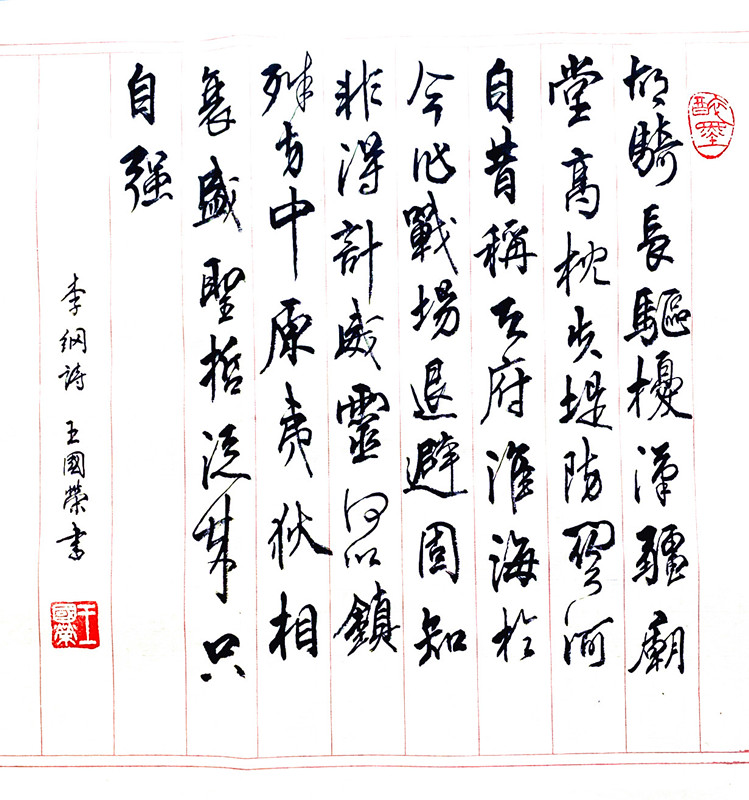 醉墨
胡騎長驅擾漢疆廟
堂高枕失堤防關河
自昔稱天府淮海於
今作戰場退避固知
非得計威靈何以鎮
殊方中原夷狄相
衰盛聖哲從來只
自强
李綱詩 王國榮書
王國榮